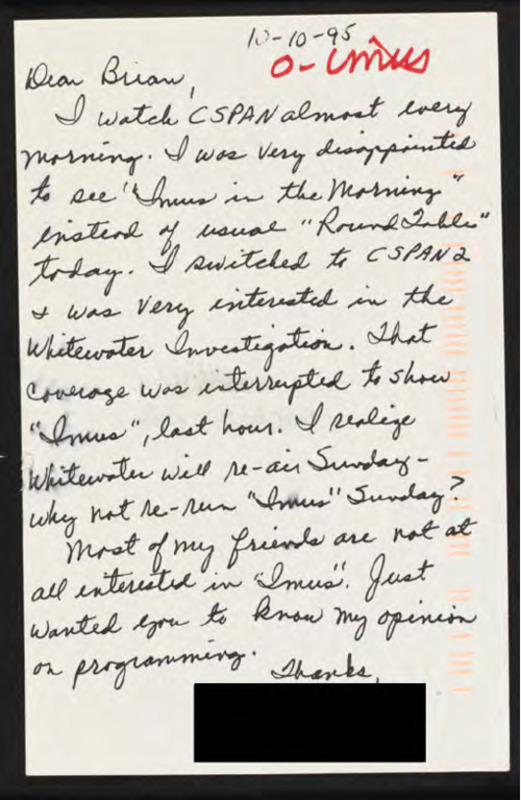 10-10-95
O-Imus
Dear Brian,
I watch CSPAN almost every
morning. I was very disappointed
to see "Imus in the Morning"
instead of usual "Round Table"
today. I switched to CSPAN2
& was very interested in the
Whitewater Investigation. That
coverage was interrupted to show
"Imus", last hour. I realize
Whitewater will re-air Sunday-
why not re-run "Imus" Sunday?
Most of my friends are not at
all interested in "Imus". Just
wanted you to know my opinion
on programming.
Thanks,